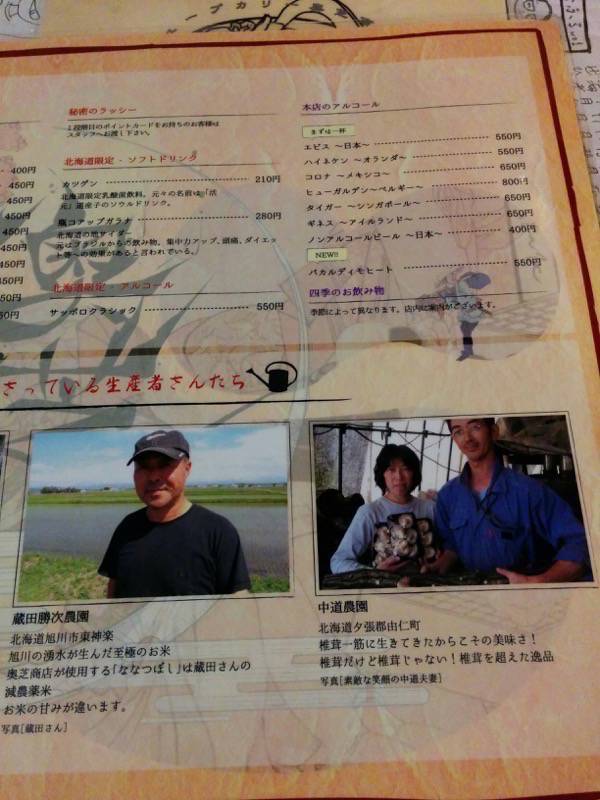 ープカリ
400円
450円
450円
450円
450円
450円
450円
秘密のラッシー
2段階目のポイントカードをお持ちのお客様は
スタッフへお渡し下さい。
北海道限定・ソフトドリンク
カツゲン 210円
北海道限定乳酸菌飲料。元々の名前は「活
元」道産子のソウルドリンク。
瓶コアップガラナ 280円
北海道の地サイダー
元はブラジルからの飲み物。集中力アップ、頭痛、ダイエッ
ト等への効果があると言われている。
北海道限定・アルコール
サッポロクラシック 550円
本店のアルコール
まずは一杯
エビス 〜日本〜 550円
ハイネケン 〜オランダ〜 550円
コロナ 〜メキシコ〜 650円
ヒューガルデン〜ベルギー〜 800円
タイガー 〜シンガポール〜 650円
ギネス 〜アイルランド〜 650円
ノンアルコールビール 〜日本〜 400円
NEW!!
バカルディモヒート 550円
四季のお飲み物
季節によって異なります。店内に案内がございます。
さっている生産者さんたち
蔵田勝次農園
北海道旭川市東神楽
旭川の湧水が生んだ至極のお米
奥芝商店が使用する「ななつぼし」は蔵田さんの
減農薬米
お米の甘みが違います。
写真[蔵田さん]
中道農園
北海道夕張郡由仁町
椎茸一筋に生きてきたからこその美味さ！
椎茸だけど椎茸じゃない！椎茸を超えた逸品
写真[素敵な笑顔の中道夫妻]